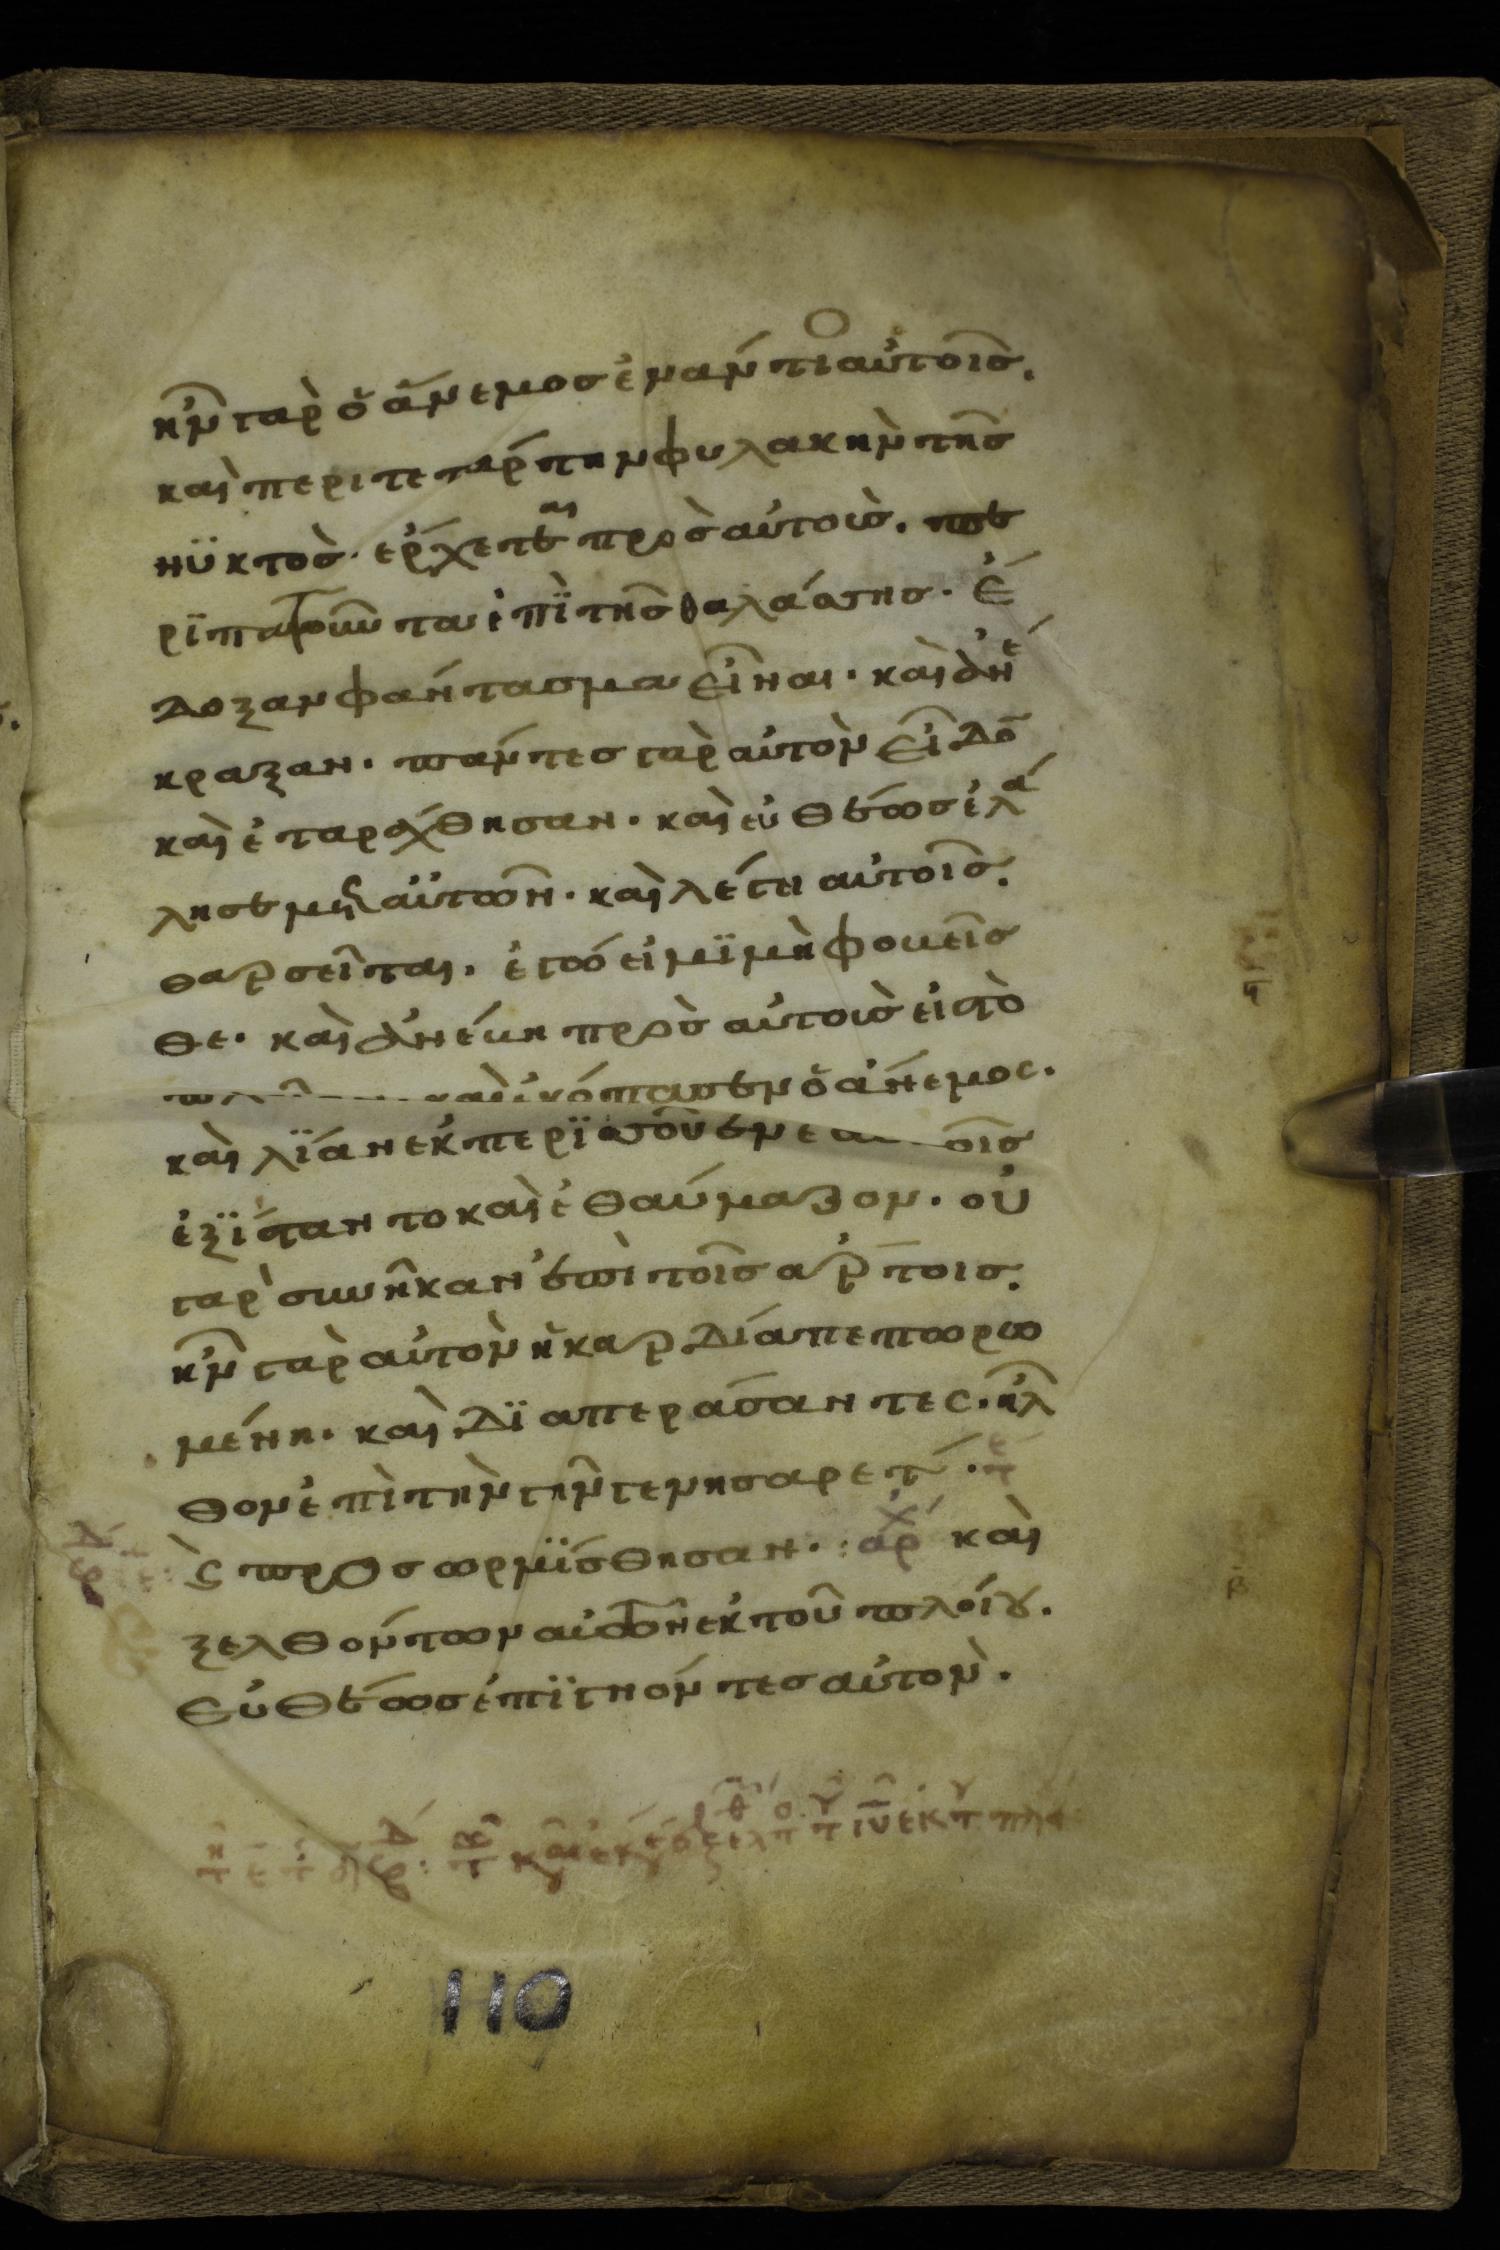 ἦν γὰρ ὁ ἄνεμος ἐναντι αὐτοῖς.
καὶ περι τετάρτην φυλακὴν τῆς
νϋκτὸς· ἔρχεται πρὸς αὐτοὺς. πε
ρϊπατοῦντα ἐπῒ τῆς θαλάσσης· ἔ
δοξαν φάντασμα εἶναι· καὶ ἀνέ
κραξαν· πάντες γὰρ αὐτὸν εἶδον
καὶ ἐταράχθησαν· καὶ εὐθέως ἐλά
λησε μετ αὐτῶν· καὶ λέγει αὐτοῖς.
θαρσεῖται. ἐγώ εἰμϊ μὴ φοβεῖσ
θε· καὶ ἀνέβη πρὸς αὐτοὺς εἰς τὸ
καὶ ἐκόπασεν ὁ ἄνεμος.
καὶ λϊάν ἐκ περϊσσοῦ ἐν
ἐξϊσταντο καὶ ἐθαύμαζον. οὐ
γὰρ συνῆκαν ἐπὶ τοῖς ἄρτοις.
ἦν γὰρ αὐτὸν ἡ καρδία πεπωρω
μένη. καὶ δϊαπεράσαντες. ἦλ
θον ἐπὶ τὴν γῆν γεννησαρετ. τέ
ς προσωρμϊσθησαν. : ἀρχ καὶ
ξελθόντων αὐτῶν ἐκ τοῦ πλοίου.
εὐθέως ἐπϊγνόντες αὐτὸν.
110